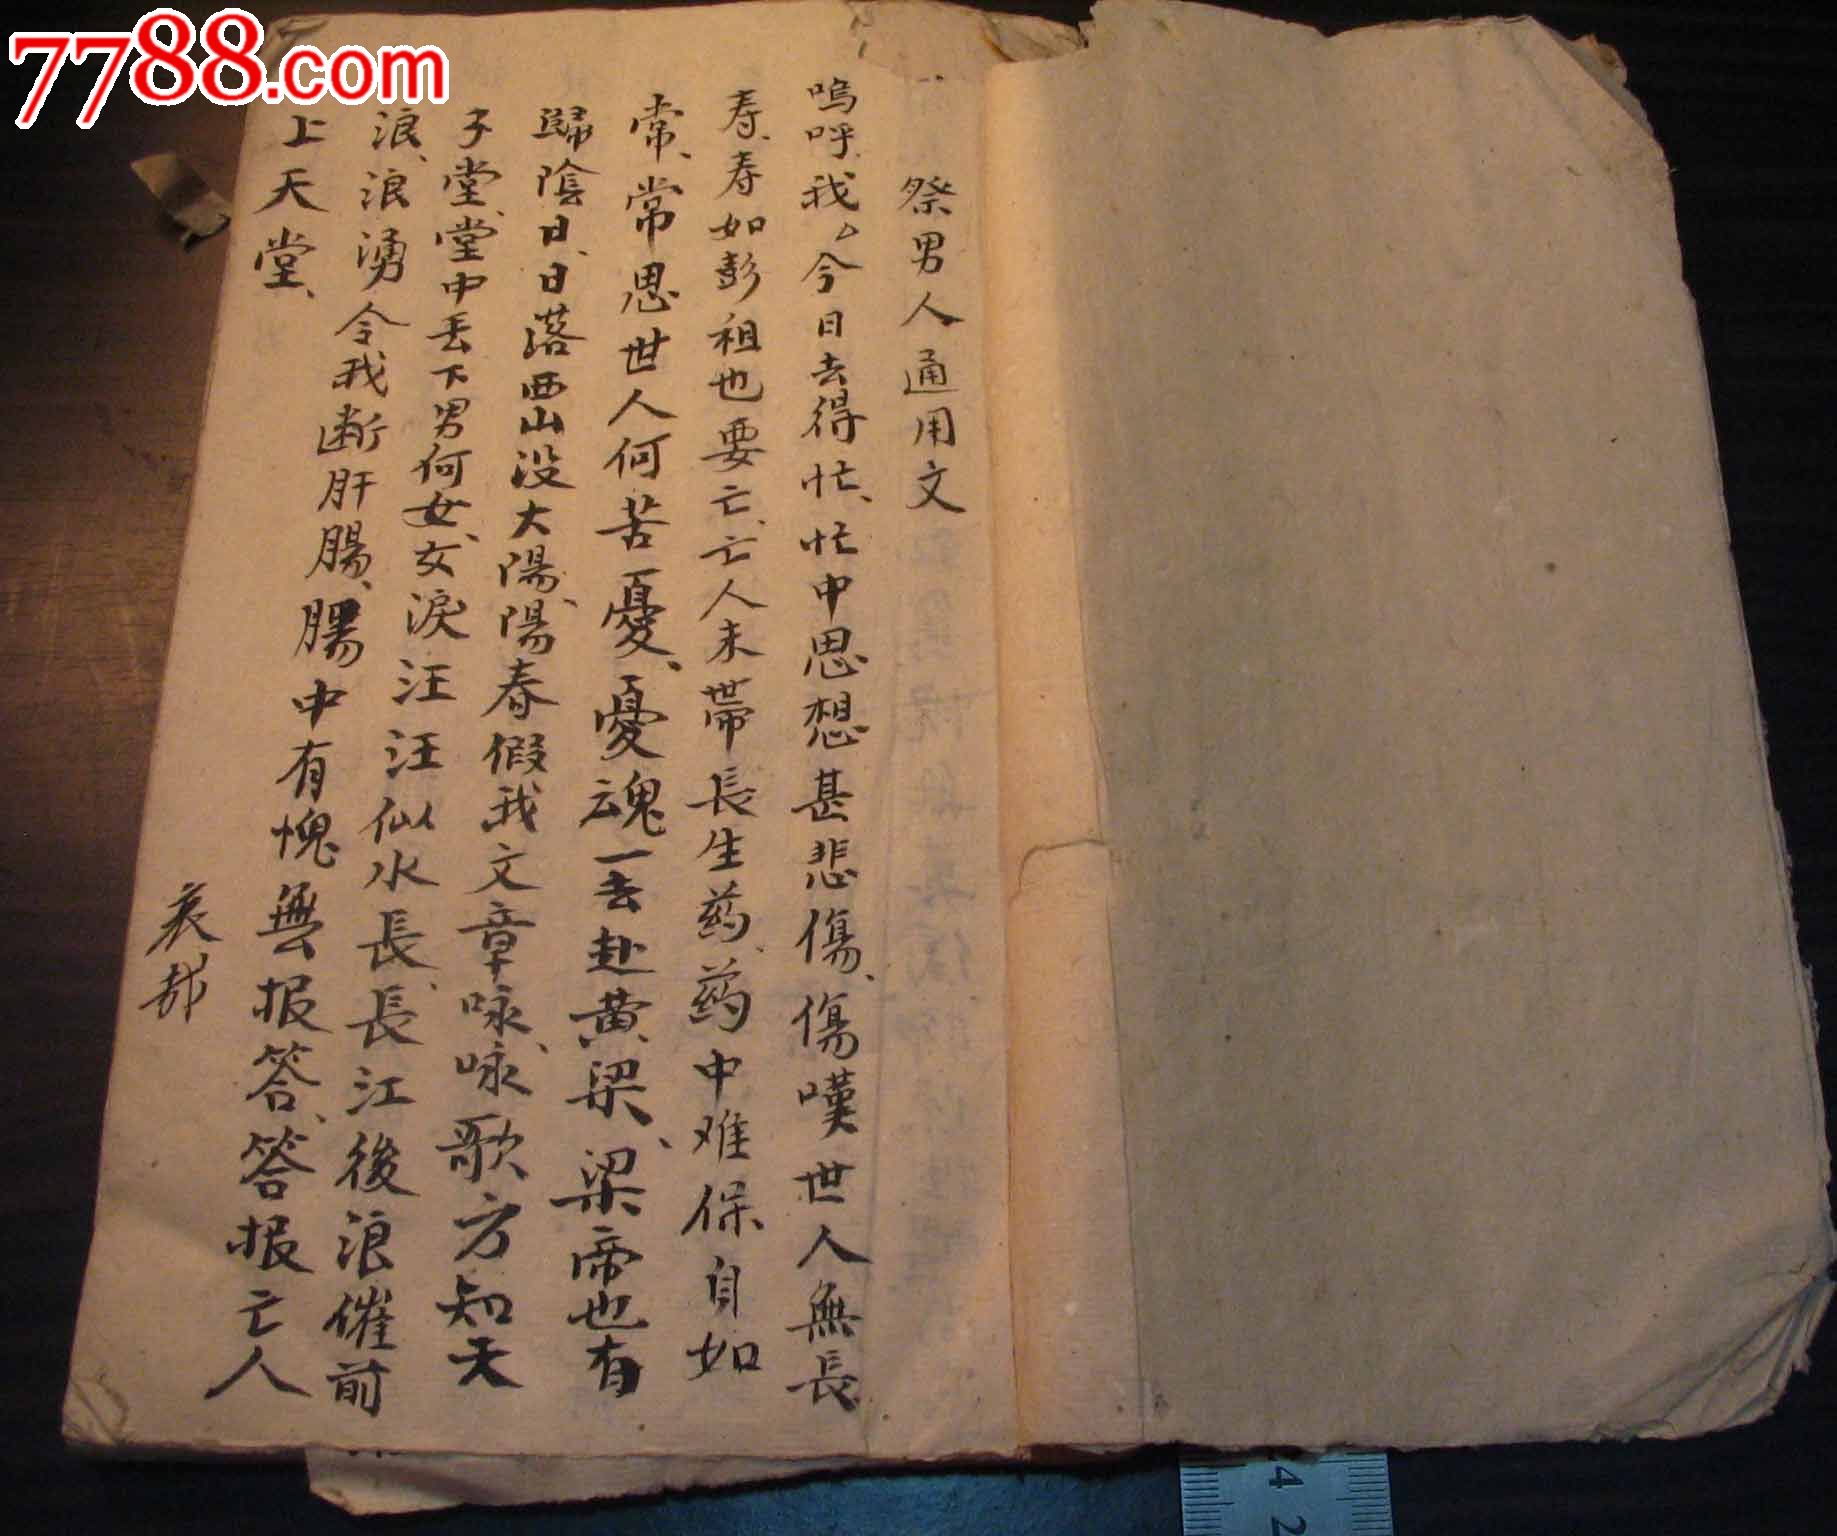 7788.com
祭男人通用文
嗚呼我公今日去得忙、忙中思想甚悲傷、傷嘆世人無長
寿、寿如彭祖也要亡、亡人未帶長生药、药中难保自如
常、常思世人何苦憂、憂魂一去赴黄梁、梁帝也有
歸陰日、日落西山没大陽、陽春假我文章咏、咏歌方知天
子堂、堂中丢下男何女、女淚汪汪似水長、長江後浪催前
浪、浪湧令我断肝腸、腸中有愧無报答、答报亡人
上天堂、
哀哉
24